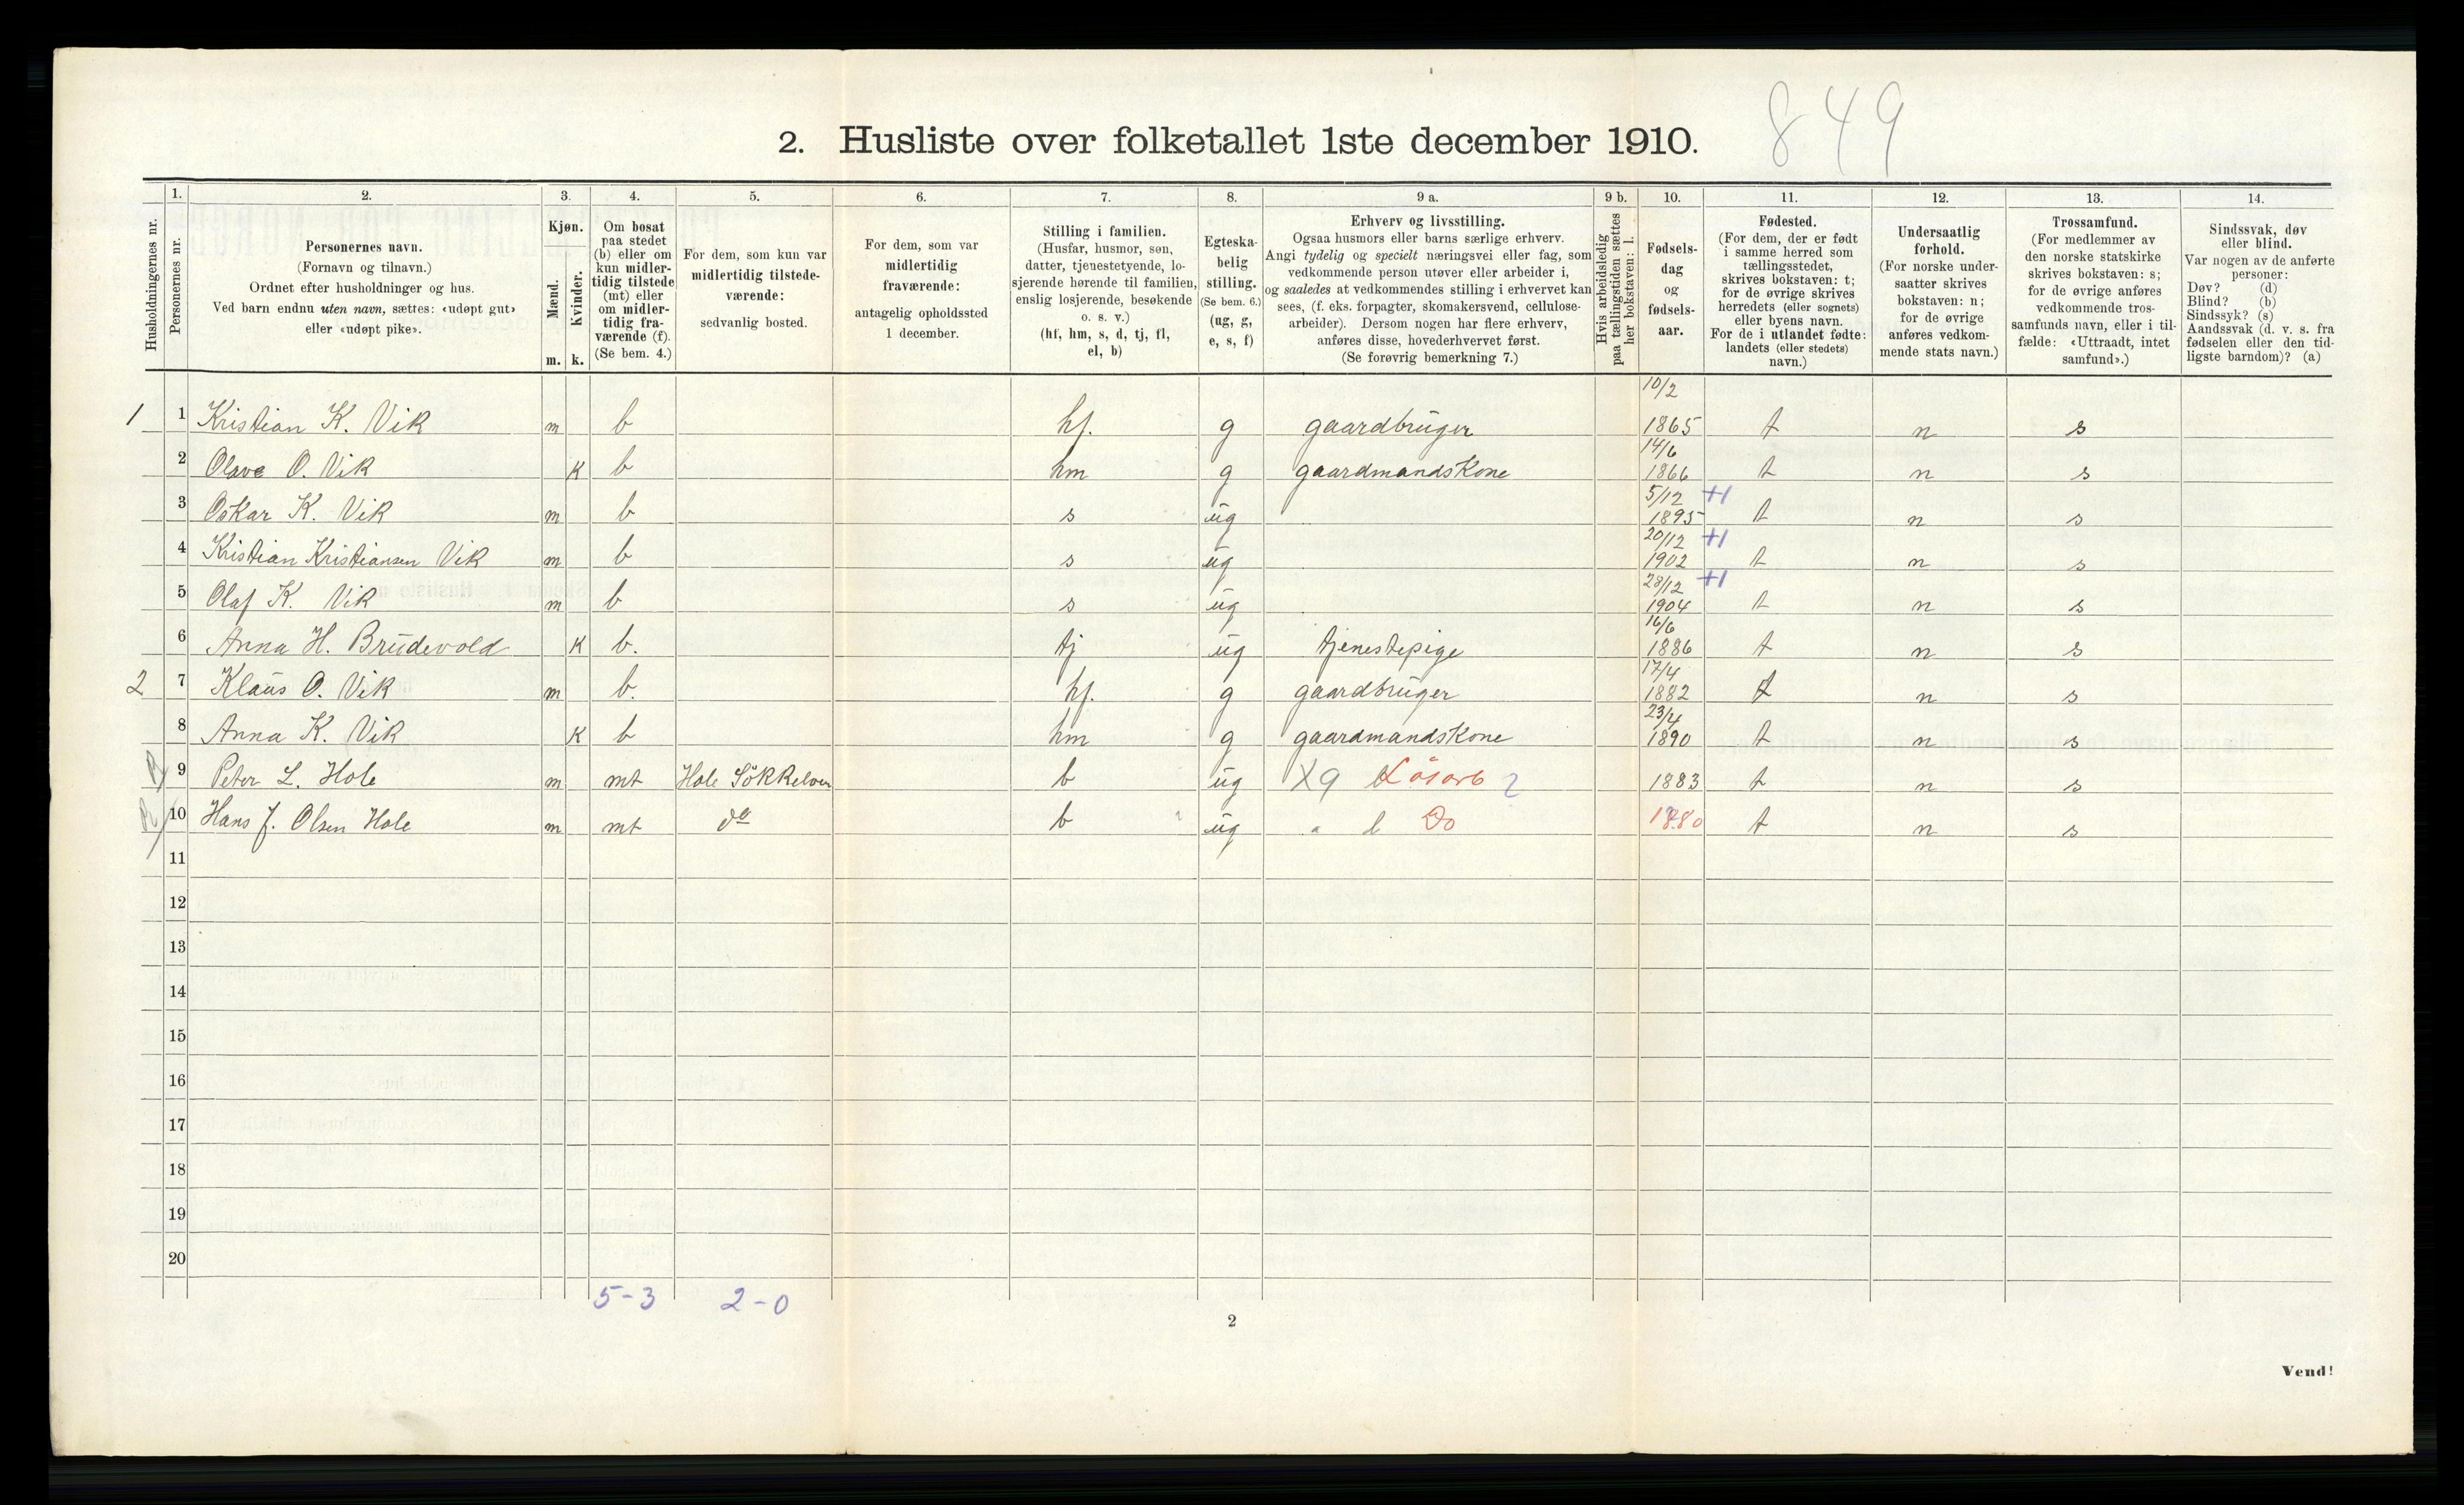 849
2. Husliste over folketallet 1ste december 1910.
Husholdningernes nr.
1.
Personernes nr.
2.
Personernes navn.
(Fornavn og tilnavn.)
Ordnet efter husholdninger og hus.
Ved barn endnu uten navn, sættes: «udøpt gut»
eller «udøpt pike».
3.
Kjøn.
Mænd.
Kvinder.
m. k.
4.
Om bosat
paa stedet
(b) eller om
kun midler-
tidig tilstede
(mt) eller
om midler-
tidig fra-
værende (f).
(Se bem. 4.)
5.
For dem, som kun var
midlertidig tilstede-
værende:
sedvanlig bosted.
6.
For dem, som var
midlertidig
fraværende:
antagelig opholdssted
1 december.
7.
Stilling i familien.
(Husfar, husmor, søn,
datter, tjenestetyende, lo-
sjerende hørende til familien,
enslig losjerende, besøkende
o. s. v.)
(hf, hm, s, d, tj, fl,
el, b)
8.
Egteska-
belig
stilling.
(Se bem. 6.)
(ug, g,
e, s, f)
9 a.
Erhverv og livsstilling.
Ogsaa husmors eller barns særlige erhverv.
Angi tydelig og specielt næringsvei eller fag, som
vedkommende person utøver eller arbeider i,
og saaledes at vedkommendes stilling i erhvervet kan
sees, (f. eks. forpagter, skomakersvend, cellulose-
arbeider). Dersom nogen har flere erhverv,
anføres disse, hovederhvervet først.
(Se forøvrig bemerkning 7.)
9 b.
Hvis arbeidsledig
paa tællingstiden sættes
her bokstaven: l.
10.
Fødsels-
dag
og
fødsels-
aar.
11.
Fødested.
(For dem, der er født
i samme herred som
tællingsstedet,
skrives bokstaven: t;
for de øvrige skrives
herredets (eller sognets)
eller byens navn.
For de i utlandet fødte:
landets (eller stedets)
navn.)
12.
Undersaatlig
forhold.
(For norske under-
saatter skrives
bokstaven: n;
for de øvrige
anføres vedkom-
mende stats navn.)
13.
Trossamfund.
(For medlemmer av
den norske statskirke
skrives bokstaven: s;
for de øvrige anføres
vedkommende tros-
samfunds navn, eller i til-
fælde: «Uttraadt, intet
samfund».)
14.
Sindssvak, døv
eller blind.
Var nogen av de anførte
personer:
Døv? (d)
Blind? (b)
Sindssyk? (s)
Aandssvak (d. v. s. fra
fødselen eller den tid-
ligste barndom)? (a)
1 1 Kristian K. Vik m b hf. g gaardbruger 10/2 1865 t n s
2 Olave O. Vik k b hm g gaardmandskone 14/6 1866 t n s
3 Oskar K. Vik m b s ug 5/12 1895 +1 t n s
4 Kristian Kristiansen Vik m b s ug 20/12 1902 +1 t n s
5 Olaf K. Vik m b s ug 28/12 1904 +1 t n s
6 Anna H. Brudevold k b. tj ug tjenestepige 16/6 1886 t n s
2 7 Klaus O. Vik m b. hf. g gaardbruger 17/4 1882 t n s
8 Anna K. Vik k b hm g gaardmandskone 23/4 1890 t n s
9 Peter L. Hole m mt Hole Sökkelven b ug Xg Løsarb 2 1883 t n s
10 Hans J. Olsen Hole m mt do b ug " l Do 1880 t n s
11
12
13
14
15
16
17
18
19
20
5-3 2-0
2
Vend!